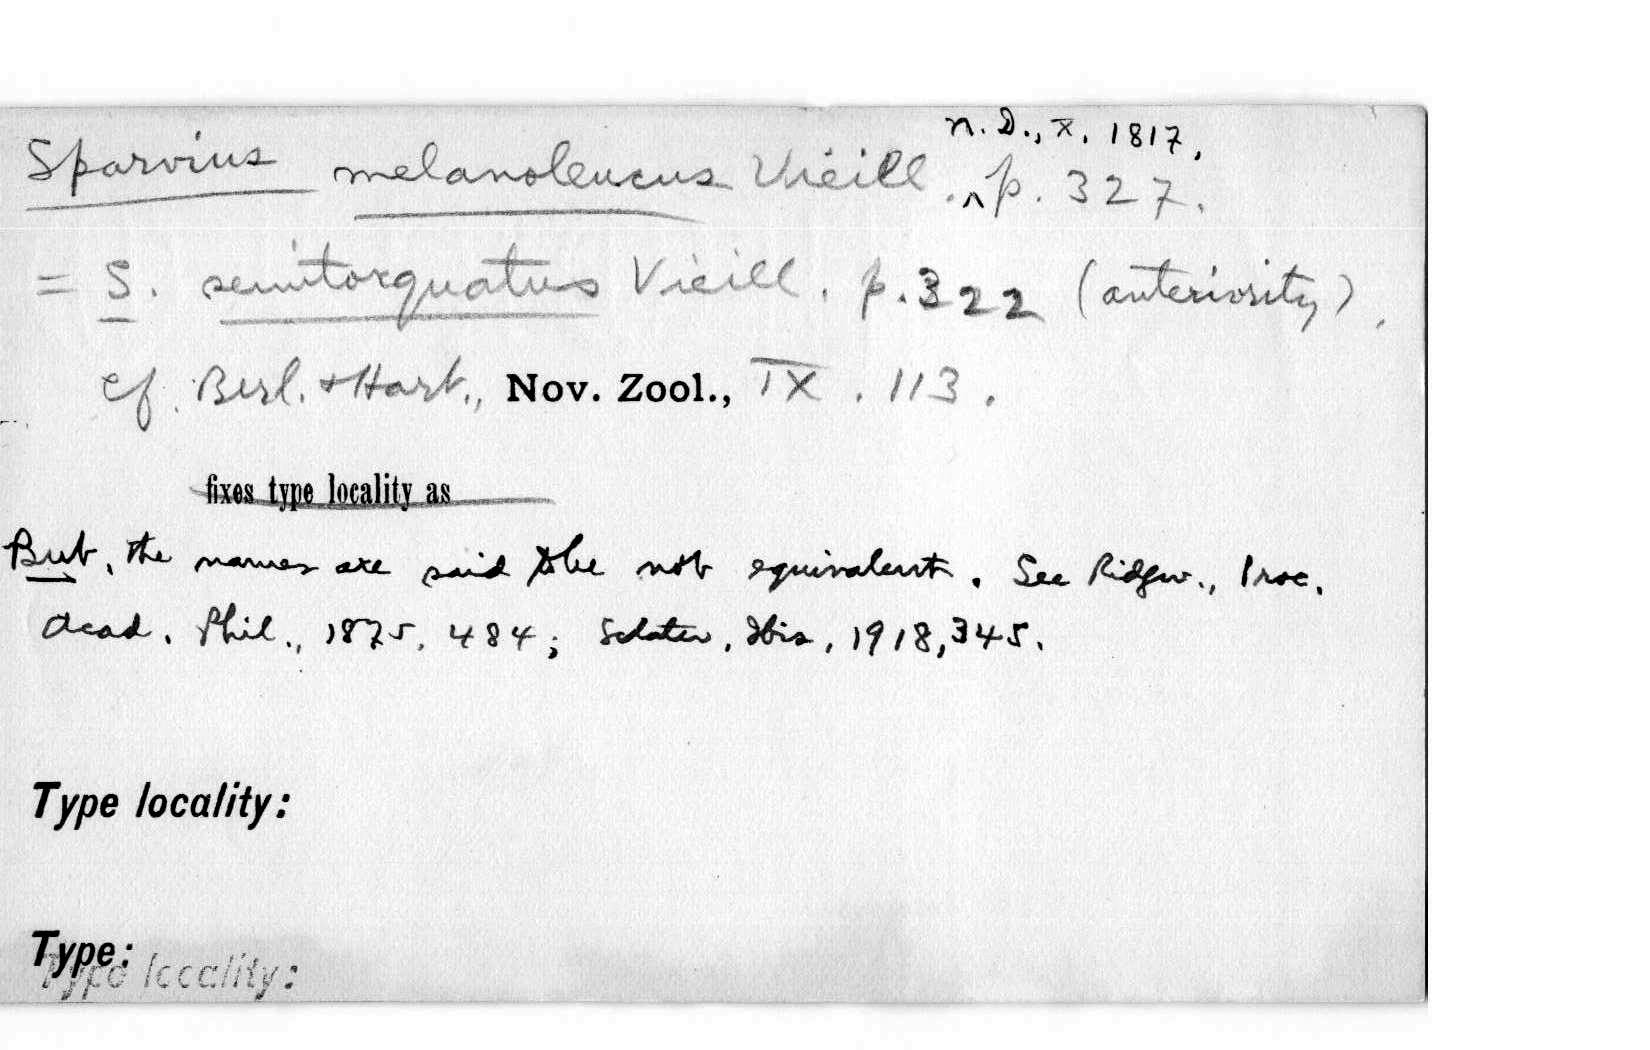 n. D., X, 1817,
Sparvius melanoleucus Vieill. ^ p. 327.
= S. semitorquatus Vieill. p. 322 (anteriority).
cf. Berl. + Hart., Nov. Zool., IX. 113.
fixes type locality as
But, the names are said to be not equivalent. See Ridgw., Proc.
Acad. Phil., 1875, 484; Sclater, Ibis, 1918, 345.
Type locality:
Type:
Type locality: